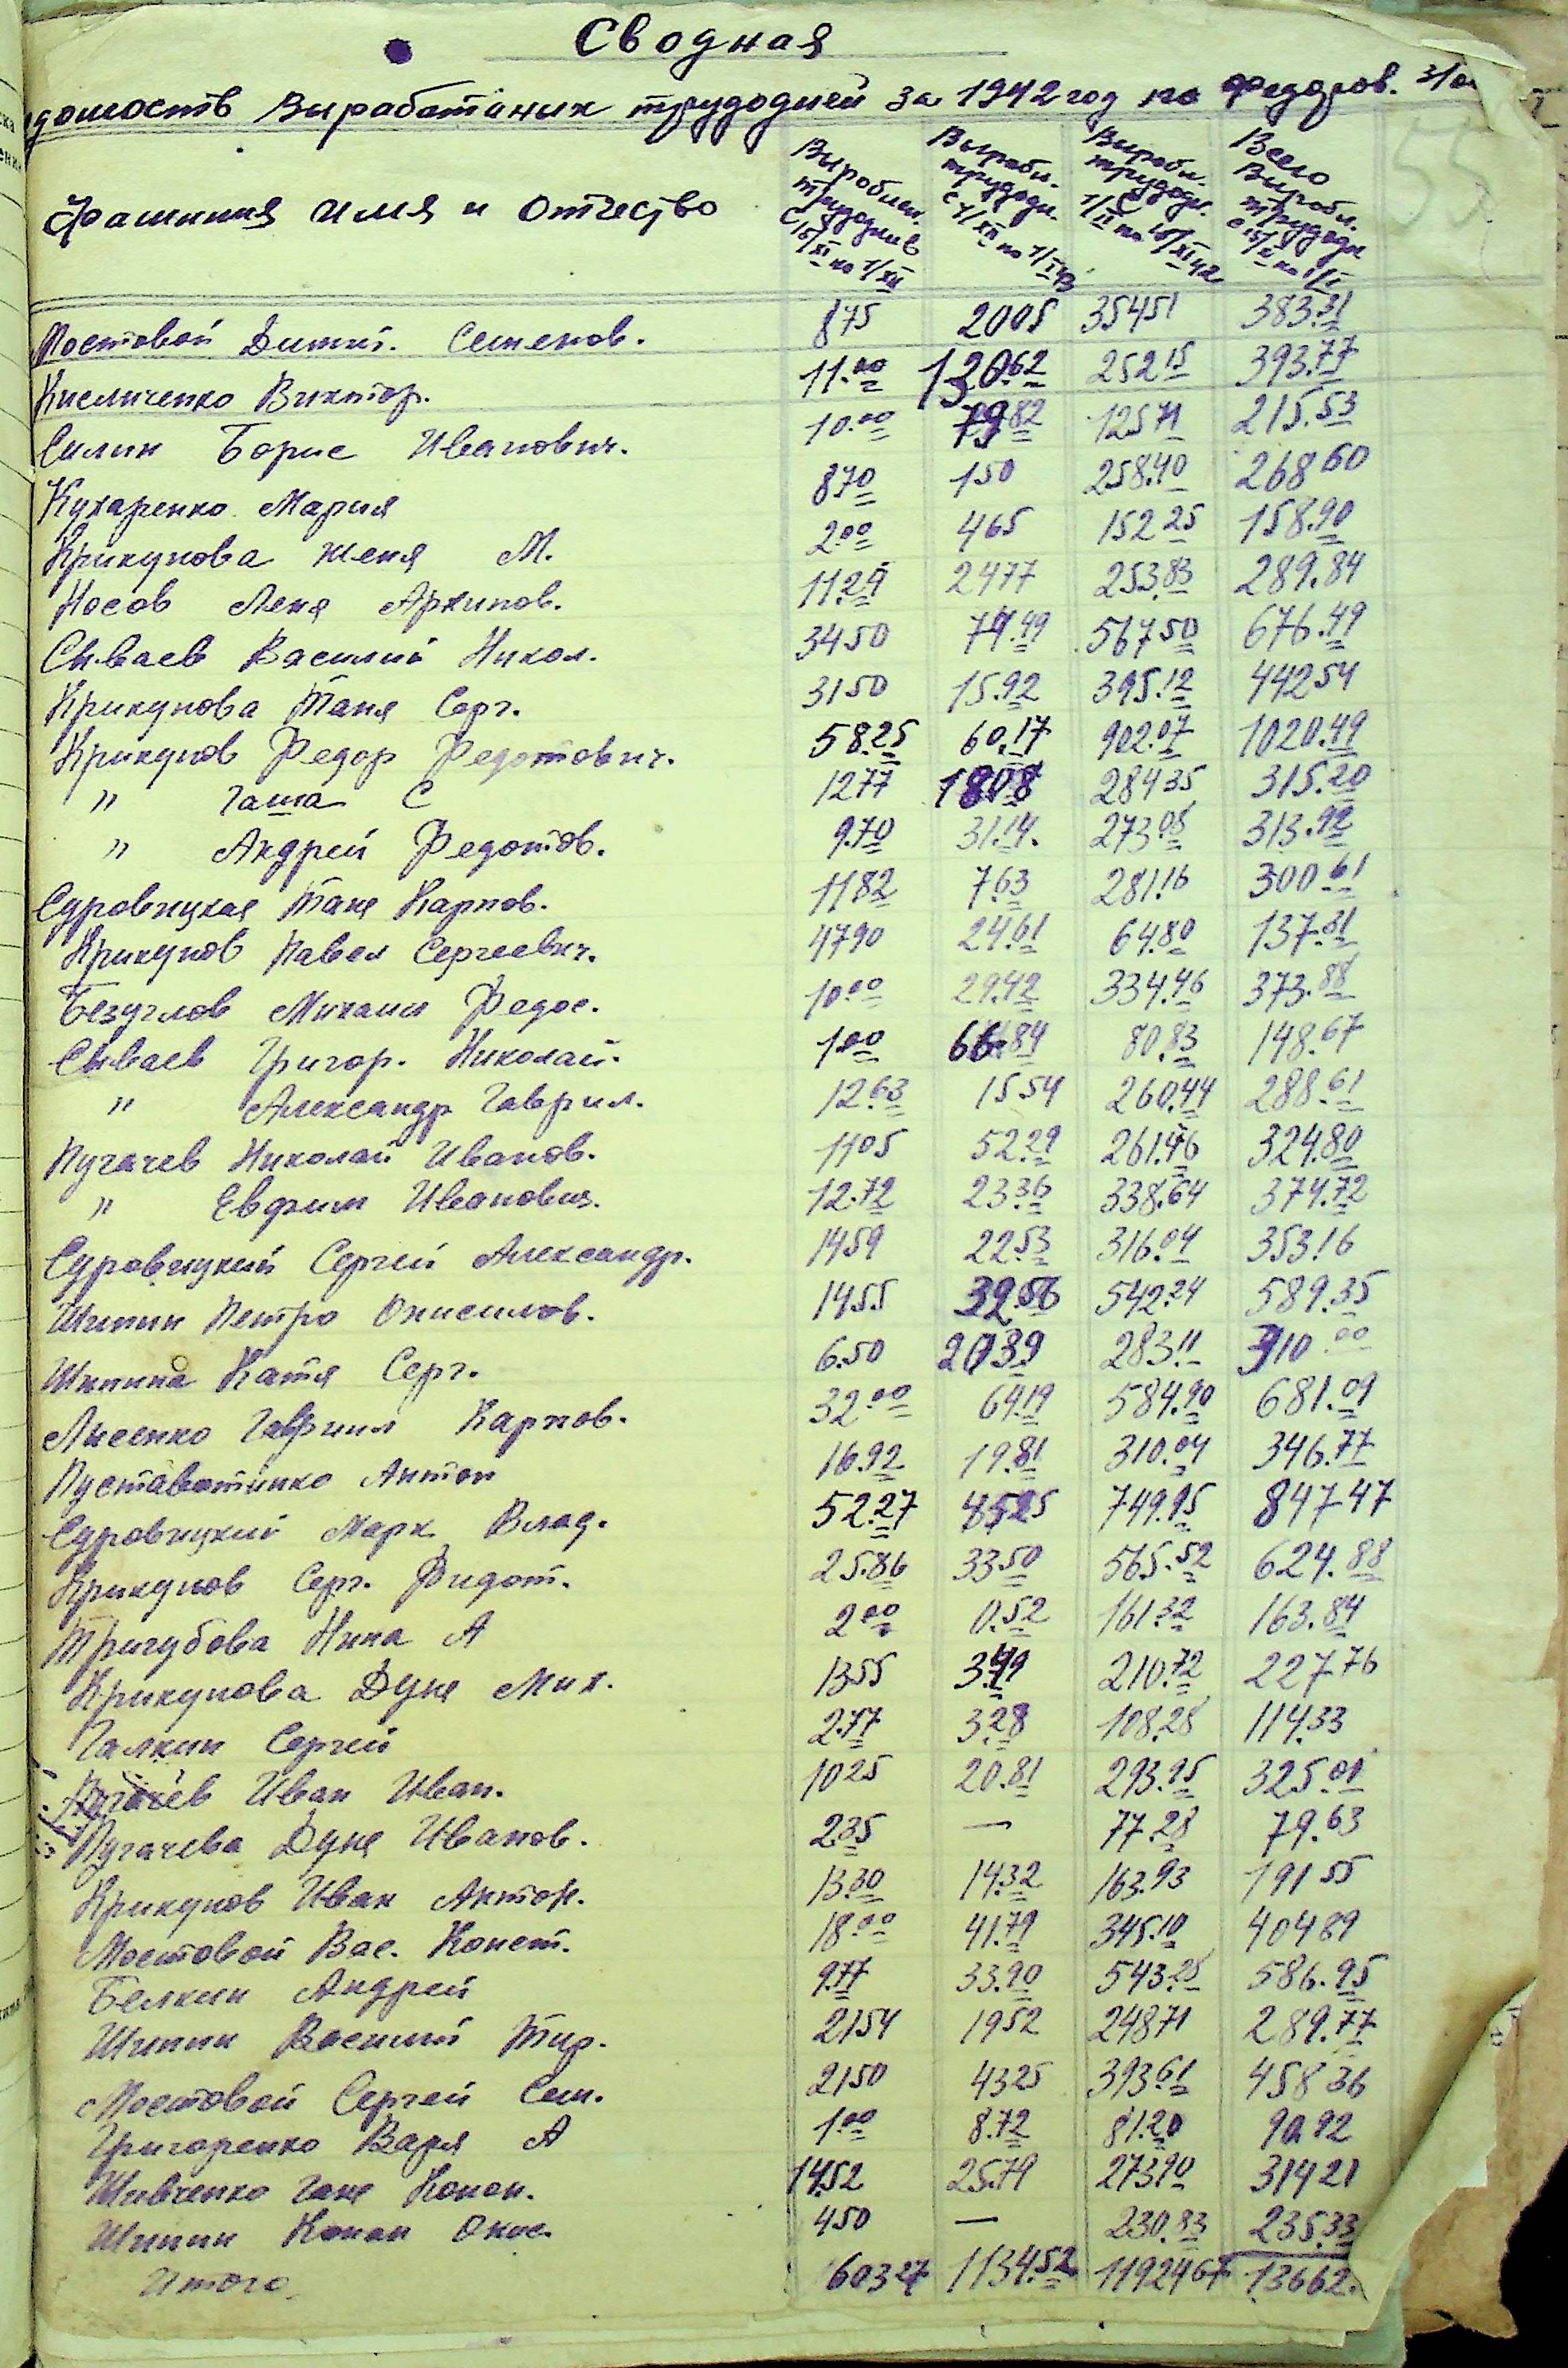 Сводная
домость Выработаных трудодней за 1942 год по Федоров.
Фамилия имя и Отчество
Выработан. трудодней С 15/XI по 1/XII
Вырабт. трудодн. С 1/XII по 1/I 43
Выработ. трудодн. С 1/II по 15/XI 42
Всего Выработ. трудодн
55
Мостовой Дмит. Семенов. 875 2005 35451 383.31
Кисличенко Виктор. 11.00 130.62 252 15 393.77
Силин Борис Иванович. 10.00 79 82 125 71 215.53
Кухаренко Мария 8 70 150 258.40 268 60
Крикунова Женя М. 2.00 465 152 25 158.90
Носов Леня Архипов. 11.24 2477 253.83 289.84
Сиваев Василий Никол. 3450 74.49 567 50 676.49
Крикунова Таня Серг. 3150 15.92 395.12 442 54
Крикунов Федор Федотович. 58.25 60.17 902.07 1020.49
" Гаша С 1277 1808 284 35 315.20
" Андрей Федотов. 9.70 31.14. 273 08 313.92
Суровицкая Таня Карпов. 1182 7.63 281.16 300.61
Крикунов Павел Сергеевич. 4790 24.61 64.80 137.31
Безуглов Михаил Федос. 10.00 29.42 334.46 373.88
Сиваев Григор. Николай. 1.00 66.84 80.83 148.67
" Александр Гаврил. 12.63 15 54 260.44 288.61
Пугачев Николай Иванов. 1105 52.29 261.46 324.80
" Евфим Иванович. 12.72 23.36 338.64 374.72
Суровицкий Сергей Александр. 1459 22.53 316.04 353.16
Шипин Петро Онисимов. 14.55 32.56 542.24 589.35
Шипина Катя Серг. 6.50 2039 283.11 310.00
Лисенко Гавриил Карпов. 32.00 64.19 584.90 681.09
Пустаботинко Антон 16.92 19.81 310.04 346.77
Суровицкий Марк Влад. 52.27 4525 749.95 847 47
Крикунов Серг. Фидот. 25.86 33 50 565.52 624.88
Тригубова Нина А 2 00 0.52 161.32 163.84
Крикунова Дуня Мих. 1355 3.49 210.72 227 76
Галкин Сергей 2.77 3.28 108.28 114.33
Пугачев Иван Иван. 1025 20.81 293.95 325.01
Пугачева Дуня Иванов. 2.35 — 77.28 79.63
Крикунов Иван Антон. 13.30 14.32 163.93 191 55
Мостовой Вас. Конст. 18.00 41.79 345.10 404 89
Белкин Андрей 9.77 33.90 543.28 586.95
Шипин Василий Тир. 2154 1952 24871 289.77
Мостовой Сергей Сем. 2150 4325 393 61 458 36
Григоренко Варя А 1.00 8.72 81.20 90.92
Шивченко Ганя Конон. 14.52 25.79 273 90 314 21
Шипин Конан Онис. 450 — 230.83 235.33
Итого 603 27 1134.52 11924 67 13662.